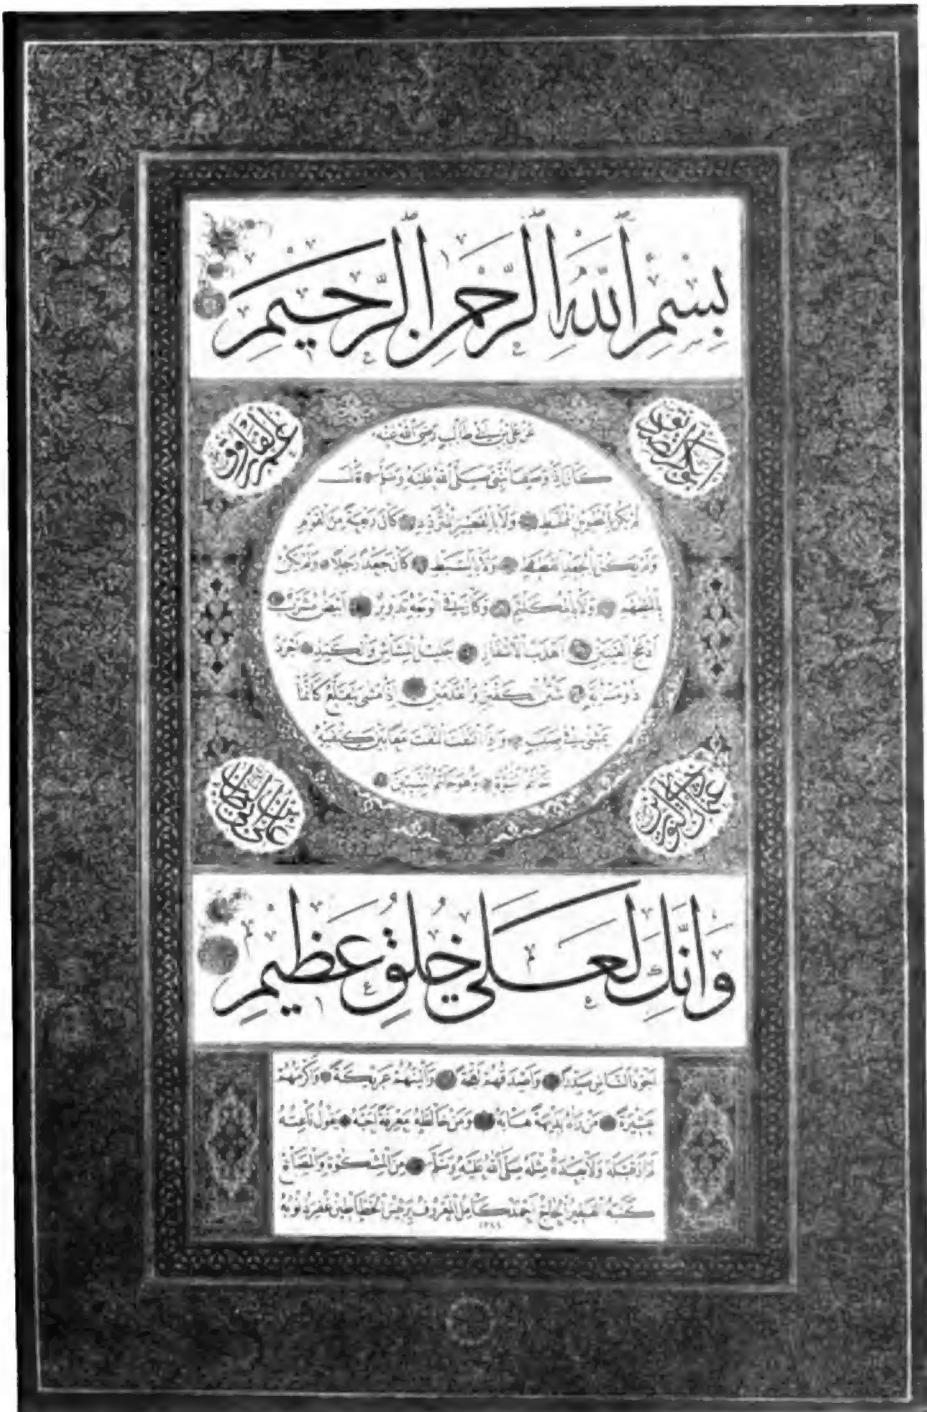 بِسْمِ اللهِ الرَّحْمٰنِ الرَّحِيمِ
ابى بكر
عمر الفاروق
عَنْ عَلِيِّ بْنِ أَبِي طَالِبٍ رَضِيَ اللهُ عَنْهُ
كَانَ إِذَا وَصَفَ النَّبِيَّ صَلَّى اللهُ عَلَيْهِ وَسَلَّمَ قَالَ
لَمْ يَكُنْ بِالطَّوِيلِ الْمُمَّغِطِ وَلَا بِالْقَصِيرِ الْمُتَرَدِّدِ كَانَ رَبْعَةً مِنَ الْقَوْمِ
وَلَمْ يَكُنْ بِالْجَعْدِ الْقَطَطِ وَلَا بِالسَّبْطِ كَانَ جَعْدًا رَجِلًا وَلَمْ يَكُنْ
بِالْمُطَهَّمِ وَلَا بِالْمُكَلْثَمِ وَكَانَ فِي الْوَجْهِ تَدْوِيرٌ أَبْيَضُ مُشْرَبٌ
أَدْعَجُ الْعَيْنَيْنِ أَهْدَبُ الْأَشْفَارِ جَلِيلُ الْمُشَاشِ وَالْكَتَدِ أَجْرَدُ
ذُو مَسْرُبَةٍ شَثْنُ الْكَفَّيْنِ وَالْقَدَمَيْنِ إِذَا مَشَى يَتَقَلَّعُ كَأَنَّمَا
يَمْشِي فِي صَبَبٍ وَإِذَا الْتَفَتَ الْتَفَتَ مَعًا بَيْنَ كَتِفَيْهِ
خَاتَمُ النُّبُوَّةِ وَهُوَ خَاتَمُ النَّبِيِّينَ
عثمان ذى النورين
على
وَإِنَّكَ لَعَلٰى خُلُقٍ عَظِيمٍ
أَجْوَدُ النَّاسِ صَدْرًا وَأَصْدَقُهُمْ لَهْجَةً وَأَلْيَنُهُمْ عَرِيكَةً وَأَكْرَمُهُمْ
عَشِيرَةً مَنْ رَآهُ بَدِيهَةً هَابَهُ وَمَنْ خَالَطَهُ مَعْرِفَةً أَحَبَّهُ يَقُولُ نَاعِتُهُ
لَمْ أَرَ قَبْلَهُ وَلَا بَعْدَهُ مِثْلَهُ صَلَّى اللهُ عَلَيْهِ وَسَلَّمَ مِنَ الْمِشْكٰوةِ وَالْمَصَابِيحِ
كَتَبَهُ الْفَقِيرُ الْحَاجُّ أَحْمَد كَامِل الْمَعْرُوفُ بِرَئِيسِ الْخَطَّاطِينَ غُفِرَ ذُنُوبُهُ